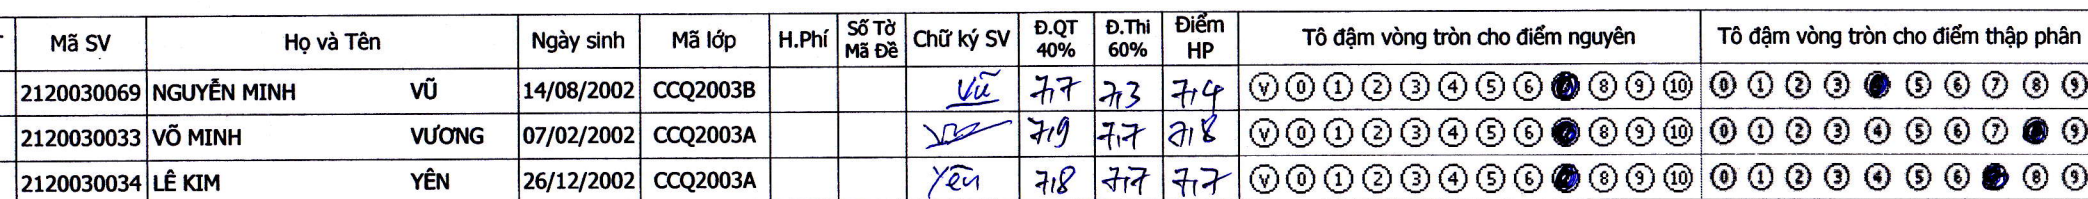 Mã SV Họ và Tên Ngày sinh Mã lớp H.Phí Số Tờ Mã Đề Chữ ký SV Đ.QT 40% Đ.Thi 60% Điểm HP Tô đậm vòng tròn cho điểm nguyên Tô đậm vòng tròn cho điểm thập phân
2120030069 NGUYỄN MINH VŨ 14/08/2002 CCQ2003B Vũ 7,7 7,3 7,4 V 0 1 2 3 4 5 6 8 9 10 0 1 2 3 5 6 7 8 9
2120030033 VÕ MINH VƯƠNG 07/02/2002 CCQ2003A 7,9 7,7 7,8 V 0 1 2 3 4 5 6 8 9 10 0 1 2 3 4 5 6 7 9
2120030034 LÊ KIM YÊN 26/12/2002 CCQ2003A Yên 7,8 7,7 7,7 V 0 1 2 3 4 5 6 8 9 10 0 1 2 3 4 5 6 8 9